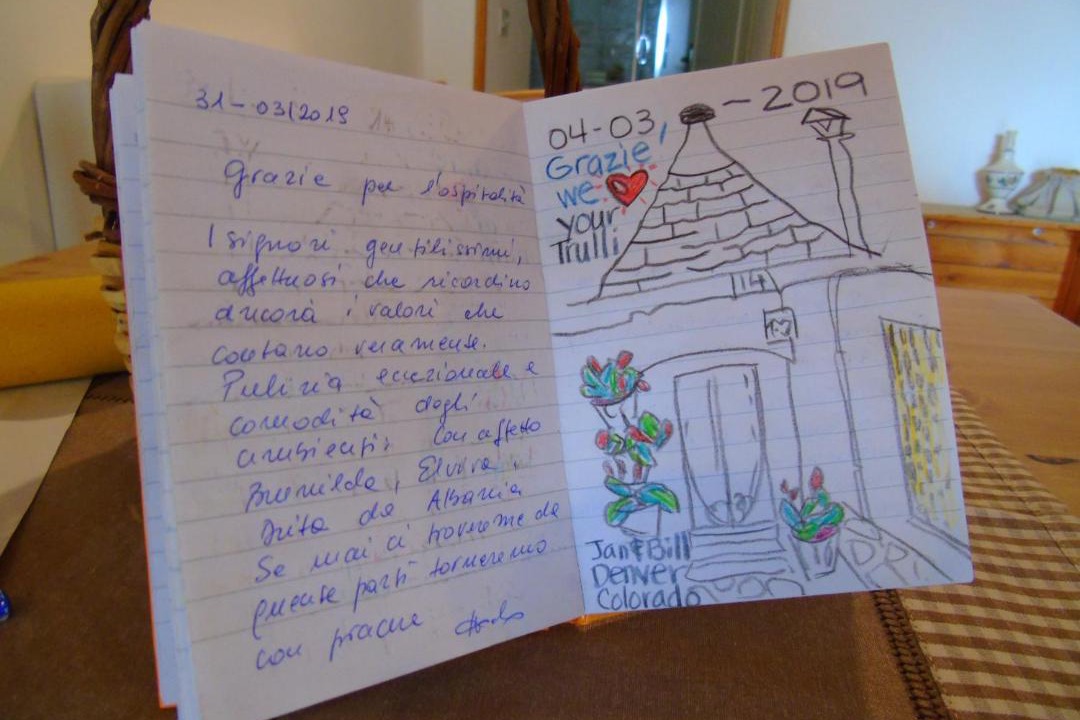 31-03/2019
Grazie per l'ospitalità
I signori gentilissimi,
affettuosi che ricordino
ancorà i valori che
contano veramente.
Pulizia eccezionale e
comodità degli
ambienti. Con affetto
Brunilda, Elvira,
Drita da Albania
Se mai ci troveremo da
queste parti torneremo
con piacere
04-03,-2019
Grazie,
we ❤
your
Trulli
14
Jan & Bill
Denver
Colorado